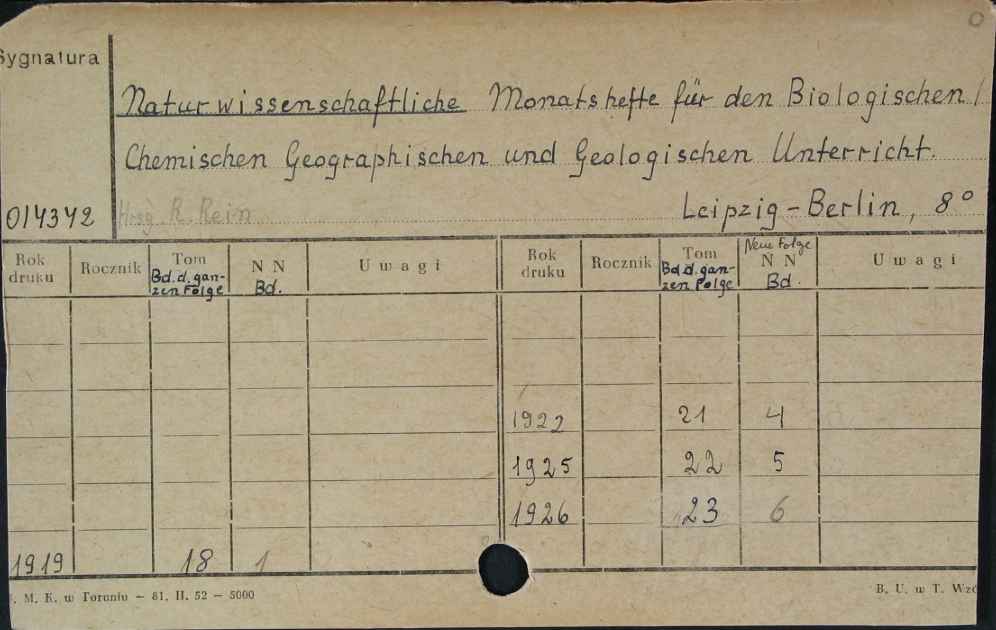 Sygnatura
Naturwissenschaftliche Monatshefte für den Biologischen/
Chemischen Geographischen und Geologischen Unterricht.
014342 Hrsg. R. Rein Leipzig-Berlin, 8°
Rok druku Rocznik Tom Bd. d. gan-zen Folge N N Bd. Uwagi Rok druku Rocznik Tom Bd. d. gan-zen Folge Neue Folge N N Bd. Uwagi
1922 21 4
1925 22 5
1926 23 6
1919 18 1
. M. K. w Toruniu — 81. II. 52 — 5000 B. U. w T. Wzó